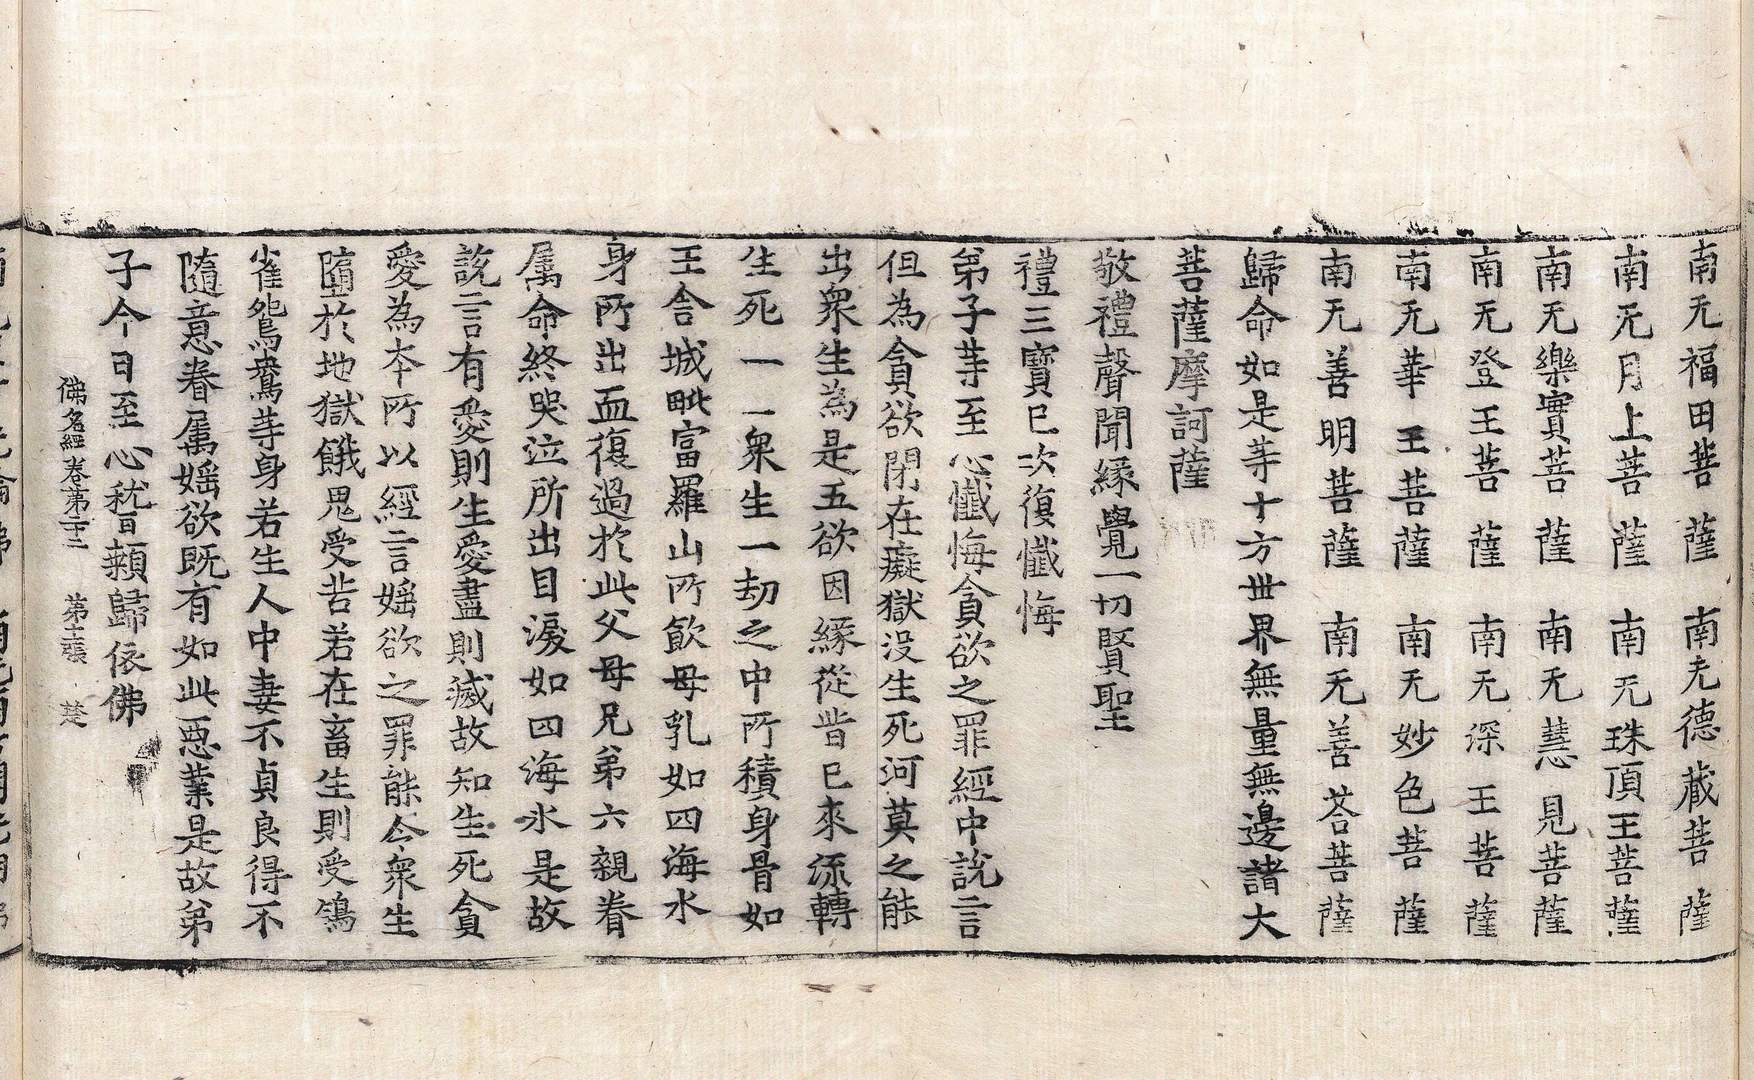 南无福田菩薩　南无德藏菩薩
南无月上菩薩　南无珠頂王菩薩
南无樂實菩薩　南无慧見菩薩
南无登王菩薩　南无深王菩薩
南无華王菩薩　南无妙色菩薩
南无善明菩薩　南无善荅菩薩
歸命如是等十方世界無量無邊諸大
菩薩摩訶薩
敬禮聲聞緣覺一切賢聖
禮三寶已次復懺悔
弟子等至心懺悔貪欲之罪經中說言
但為貪欲閉在癡獄没生死河莫之能
出衆生為是五欲因緣從昔已來流轉
生死一一衆生一劫之中所積身骨如
王舍城毗富羅山所飲母乳如四海水
身所出血復過於此父母兄弟六親眷
属命終哭泣所出目淚如四海水是故
說言有愛則生愛盡則滅故知生死貪
愛為本所以經言婬欲之罪能令衆生
墮於地獄餓鬼受苦若在畜生則受鴿
雀鴛鴦等身若生人中妻不貞良得不
隨意眷属婬欲既有如此惡業是故弟
子今日至心稽顙歸依佛
佛名經卷第二十二　第十二張　楚